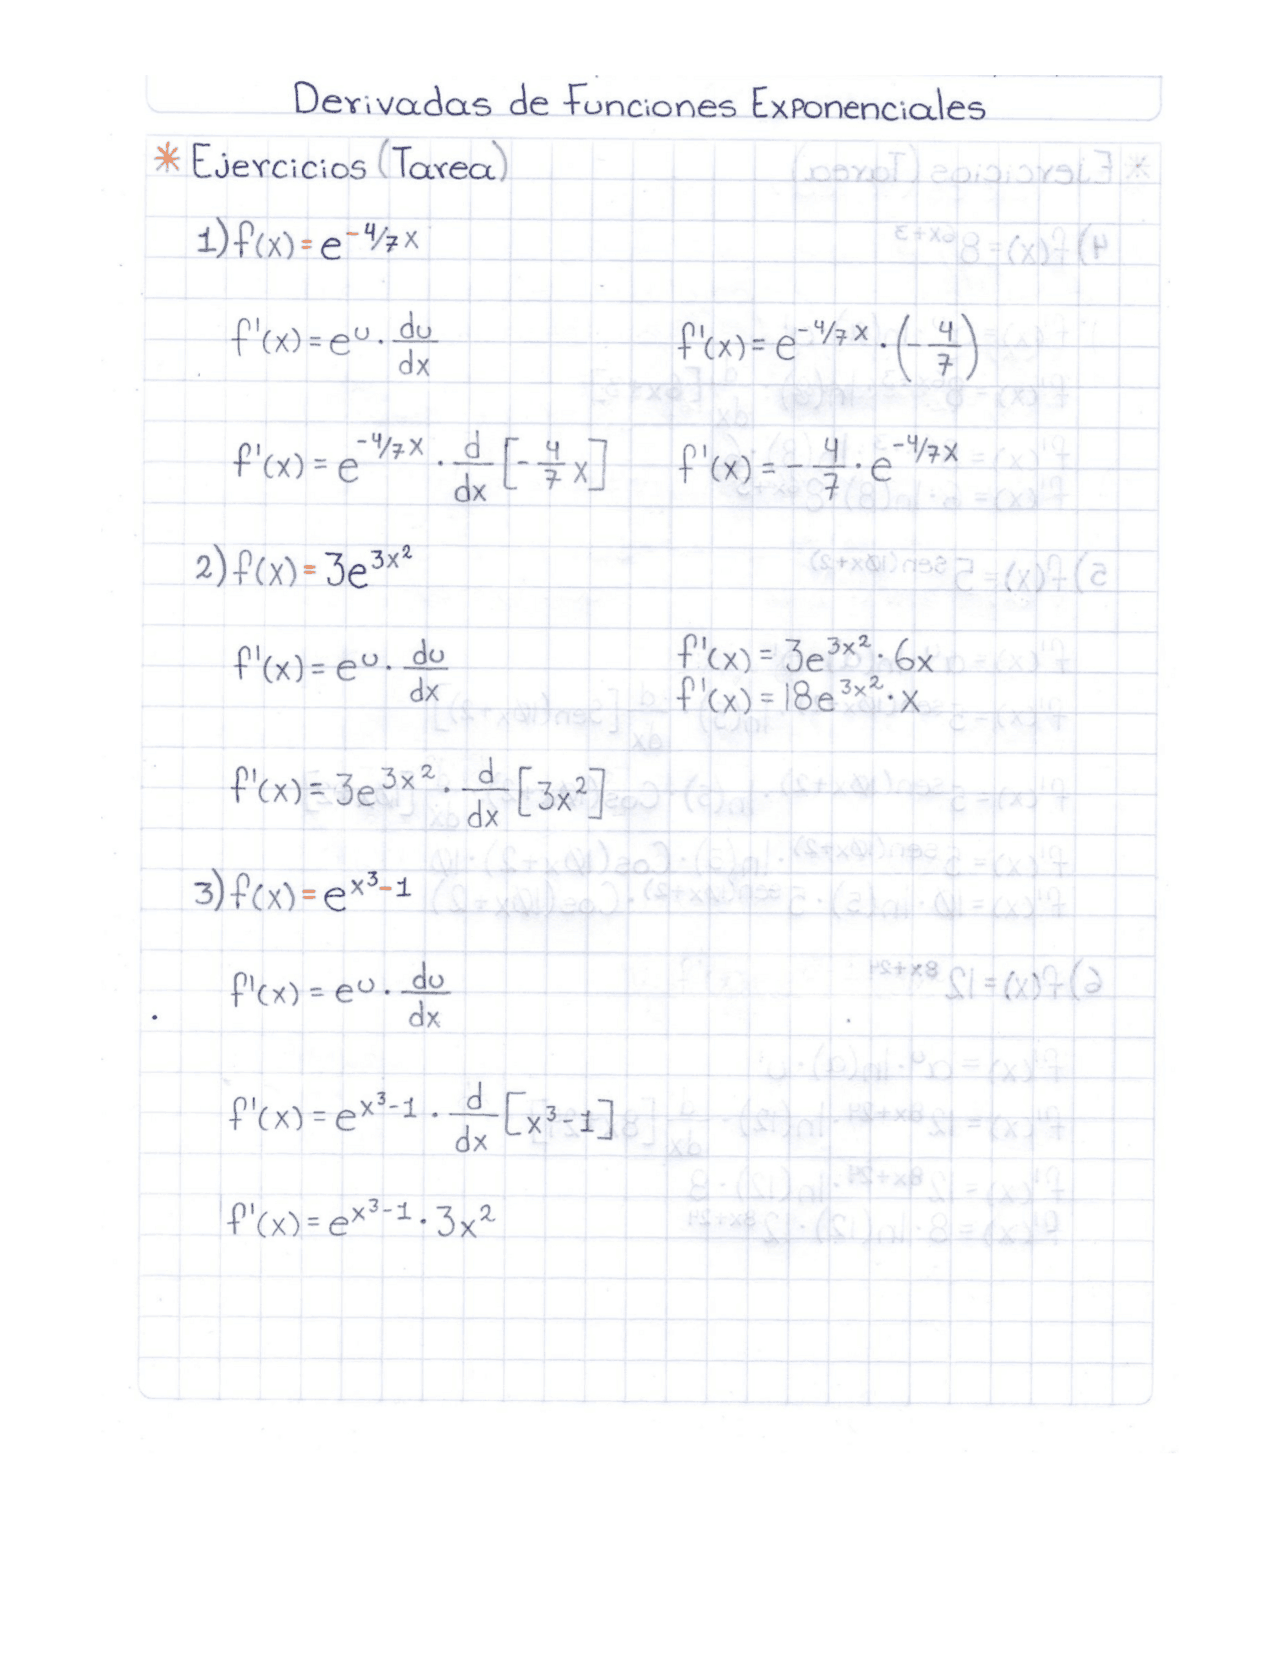 Derivadas de Funciones Exponenciales
* Ejercicios (Tarea)
1) f(x) = e^{-4/7 x}
f'(x) = e^u · du/dx
f'(x) = e^{-4/7 x} · (-4/7)
f'(x) = e^{-4/7 x} · d/dx [-4/7 x]
f'(x) = -4/7 · e^{-4/7 x}
2) f(x) = 3e^{3x²}
f'(x) = e^u · du/dx
f'(x) = 3e^{3x²} · 6x
f'(x) = 18e^{3x²} · x
f'(x) = 3e^{3x²} · d/dx [3x²]
3) f(x) = e^{x³-1}
f'(x) = e^u · du/dx
f'(x) = e^{x³-1} · d/dx [x³-1]
f'(x) = e^{x³-1} · 3x²